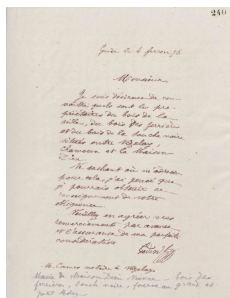 240
Guise le 6 février 76
Monsieur
Je suis désireux de con-
naître quels sont les pro-
priétaires du bois de la
ville, du bois des ferrières
et du bois de la bouche noire
situés entre Vézelay,
Chamoux et la Maison-
Dieu.
Ne sachant où m'adresser
pour cela, j'ai pensé que
je pourrais obtenir ce
renseignement de votre
obligeance.
Veuillez en agréer mes
remerciements par avance
et l'assurance de ma parfaite
considération
Godin
M. Camus notaire à Vézelay
Maire à Maison Dieu Nièvre bois des
ferrières, bouche noire, grand et
petit